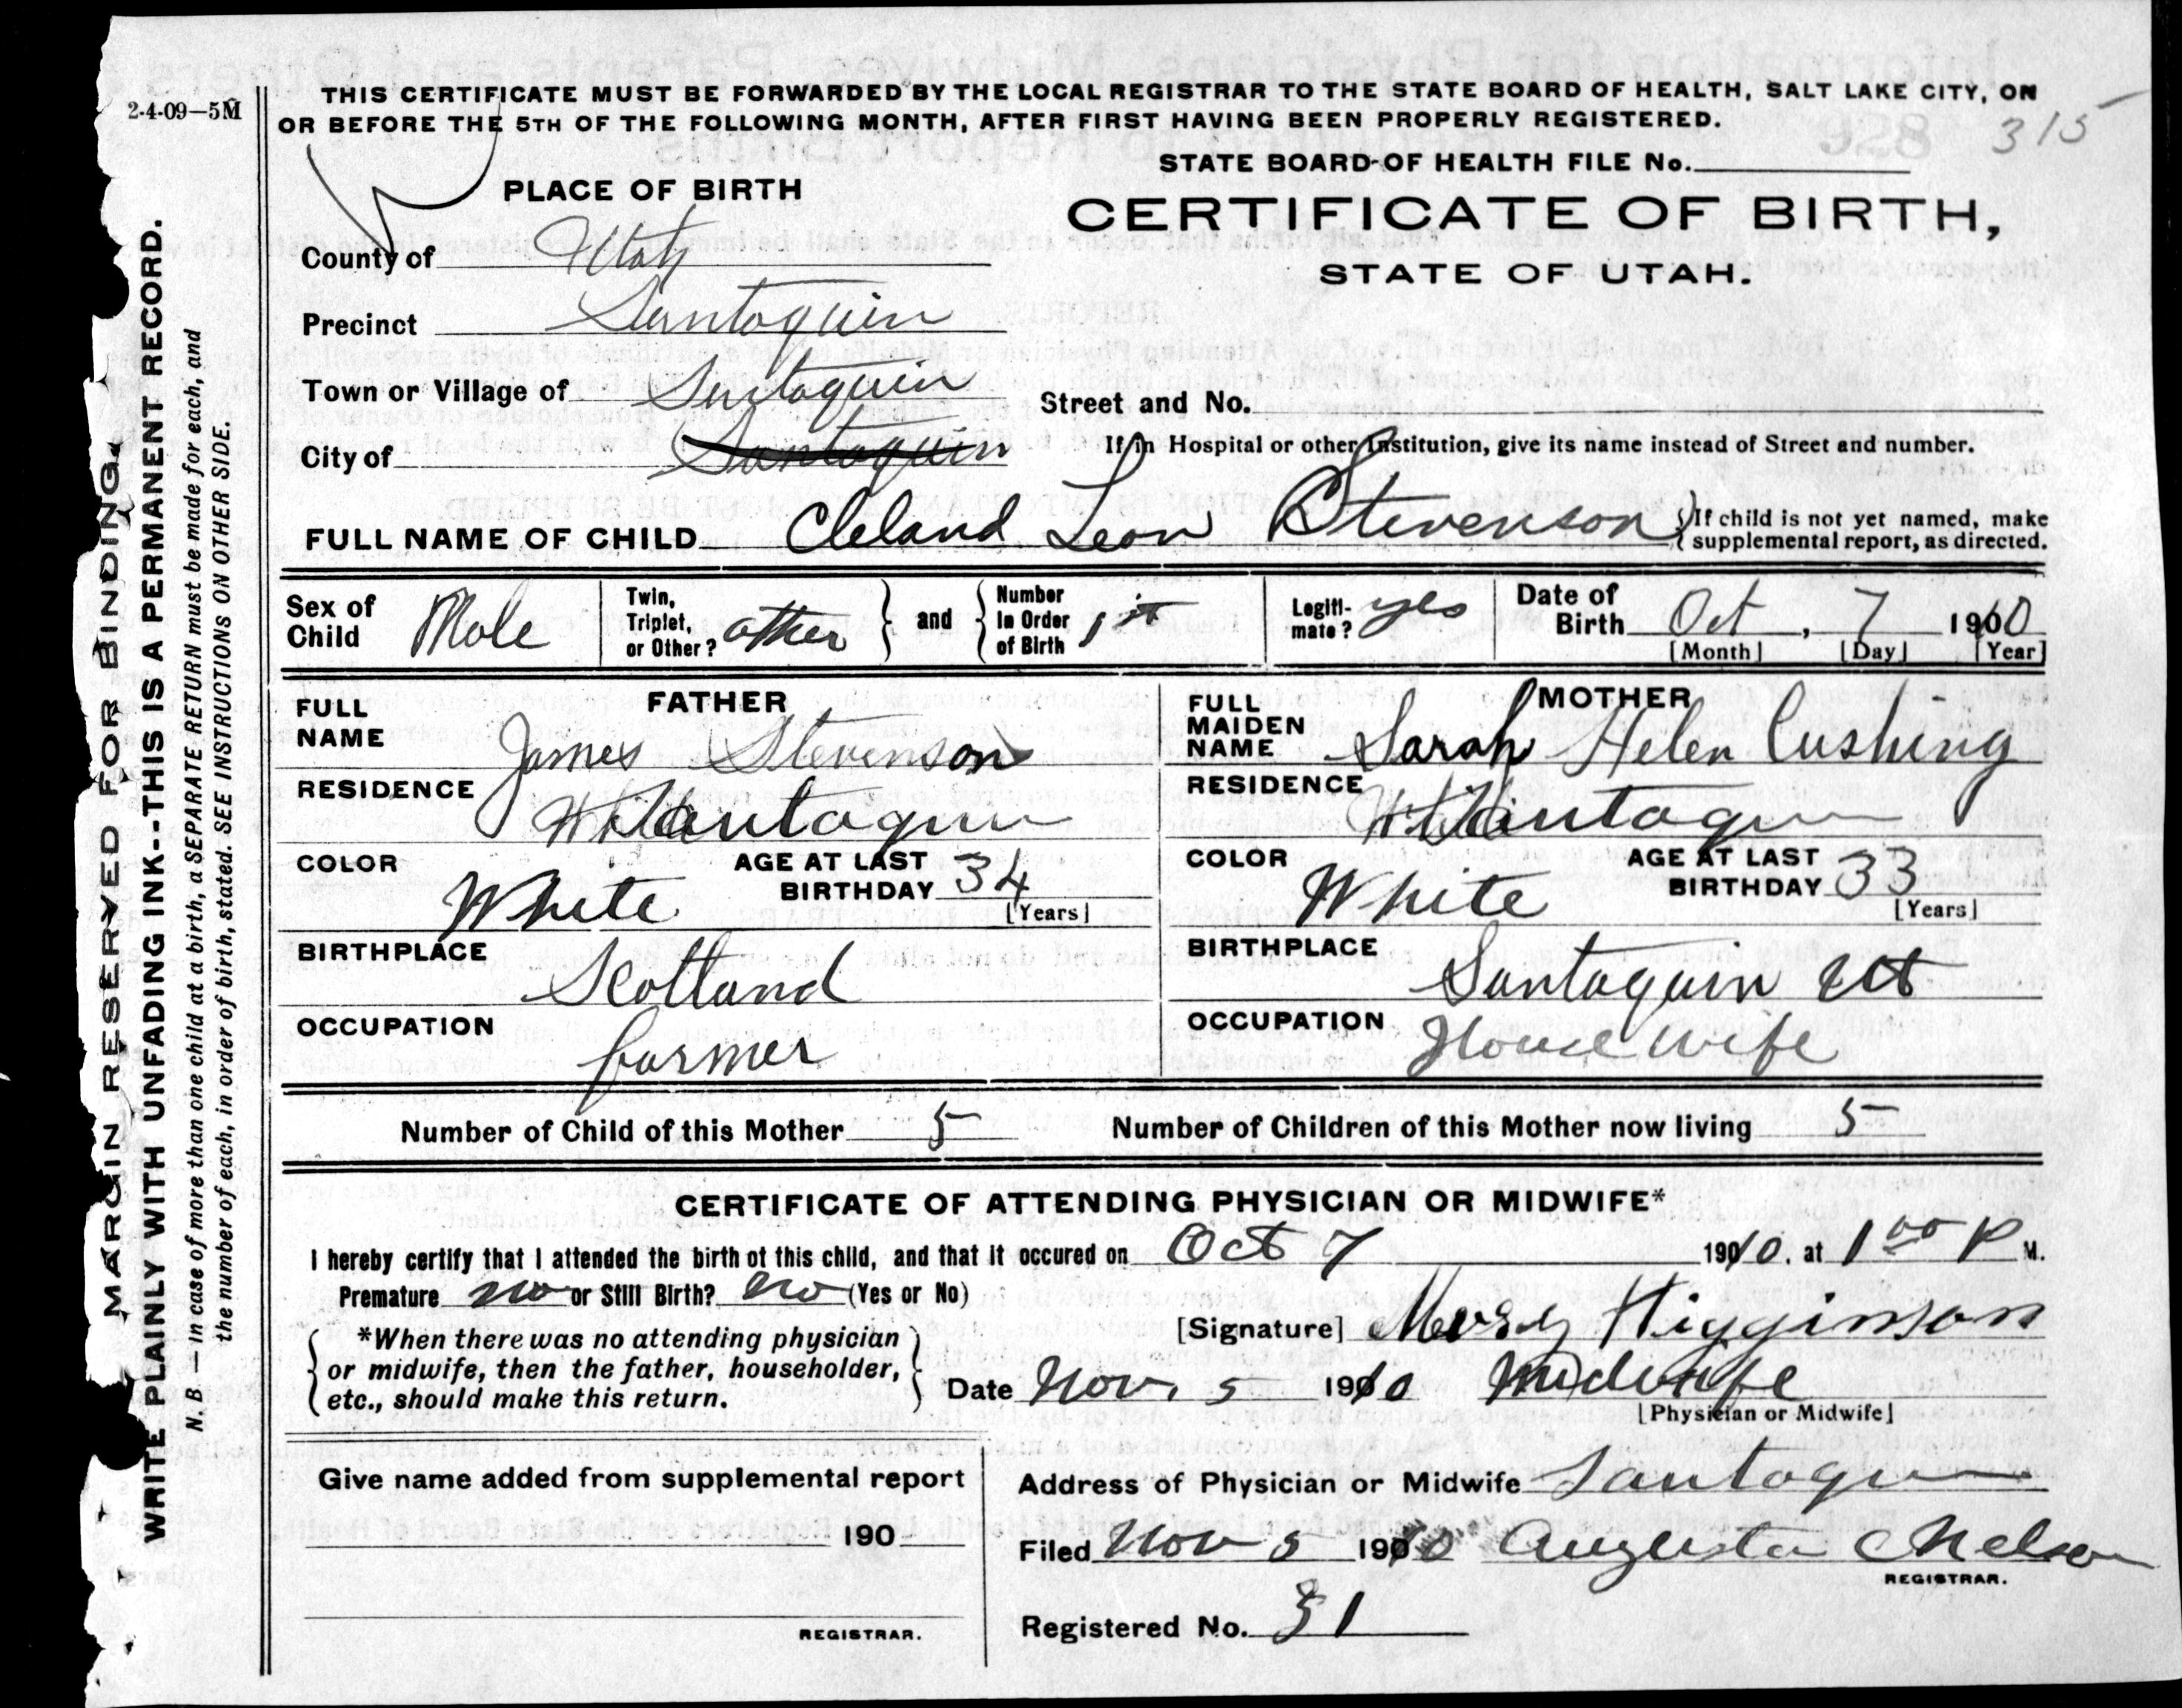 2-4-09–5M
THIS CERTIFICATE MUST BE FORWARDED BY THE LOCAL REGISTRAR TO THE STATE BOARD OF HEALTH, SALT LAKE CITY, ON
OR BEFORE THE 5TH OF THE FOLLOWING MONTH, AFTER FIRST HAVING BEEN PROPERLY REGISTERED.
928 315
STATE BOARD OF HEALTH FILE No.
PLACE OF BIRTH
CERTIFICATE OF BIRTH,
STATE OF UTAH.
County of Utah
Precinct Santaquin
Town or Village of Santaquin
Street and No.
City of Santaquin
If in Hospital or other Institution, give its name instead of Street and number.
FULL NAME OF CHILD Cleland Leon Stevenson
If child is not yet named, make
supplemental report, as directed.
Sex of Child Male
Twin, Triplet, or Other? other and Number in Order of Birth 1st
Legiti-mate? yes
Date of Birth Oct, 7 1910
[Month] [Day] [Year]
FATHER
FULL NAME James Stevenson
RESIDENCE Santaquin
COLOR White
AGE AT LAST BIRTHDAY 34
[Years]
BIRTHPLACE Scotland
OCCUPATION farmer
MOTHER
FULL MAIDEN NAME Sarah Helen Cushing
RESIDENCE Santaquin
COLOR White
AGE AT LAST BIRTHDAY 33
[Years]
BIRTHPLACE Santaquin Ut
OCCUPATION House wife
Number of Child of this Mother 5
Number of Children of this Mother now living 5
CERTIFICATE OF ATTENDING PHYSICIAN OR MIDWIFE*
I hereby certify that I attended the birth of this child, and that it occured on Oct 7 1910, at 1 00 P M.
Premature no or Still Birth? no (Yes or No)
*When there was no attending physician
or midwife, then the father, householder,
etc., should make this return.
[Signature] Mercy Higginson
Date Nov. 5 1910 Midwife
[Physician or Midwife]
Give name added from supplemental report
190
REGISTRAR.
Address of Physician or Midwife Santaquin
Filed Nov 5 1910 Augusta Nelson
REGISTRAR.
Registered No. 31
MARGIN RESERVED FOR BINDING.
WRITE PLAINLY WITH UNFADING INK--THIS IS A PERMANENT RECORD.
N. B.—In case of more than one child at a birth, a SEPARATE RETURN must be made for each, and
the number of each, in order of birth, stated. SEE INSTRUCTIONS ON OTHER SIDE.